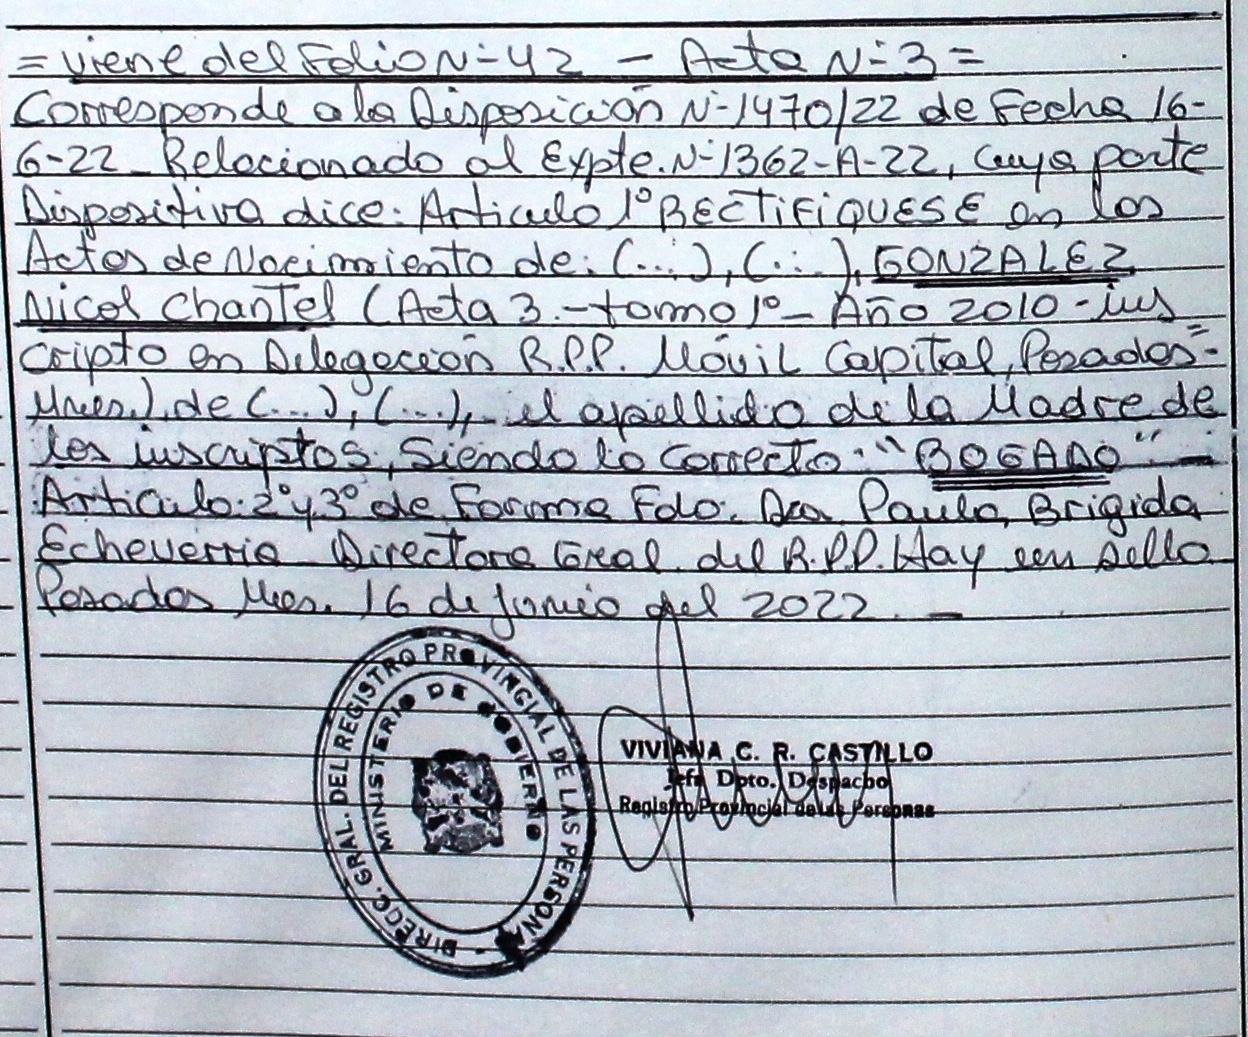 = viene del Folio N-42 - Acta N-3 =
Corresponde a la Disposición N-1470/22 de Fecha 16-
6-22 Relacionado al Expte. N-1362-A-22, cuya parte
Dispositiva dice: Articulo 1º RECTIFIQUESE en los
Actas de Nacimiento de: (...), (...), GONZALEZ
Nicol Chantel (Acta 3.- tomo 1º - Año 2010 - ins
cripto en Delegación R.P.P. Móvil Capital, Posadas=
Mnes.), de (...), (...), el apellido de la Madre de
los inscriptos, Siendo lo Correcto: "BOGADO" -
Articulo: 2º y 3º de Forma Fdo. Dra Paula Brigida
Echeverria Directora Gral. del R.P.P. Hay un Sello
Posadas Mnes. 16 de junio del 2022. -
DIRECC. GRAL. DEL REGISTRO PROVINCIAL DE LAS PERSONAS -
MINISTERIO DE GOBIERNO
VIVIANA C. R. CASTILLO
Jefa Dpto. Despacho
Registro Provincial de las Personas